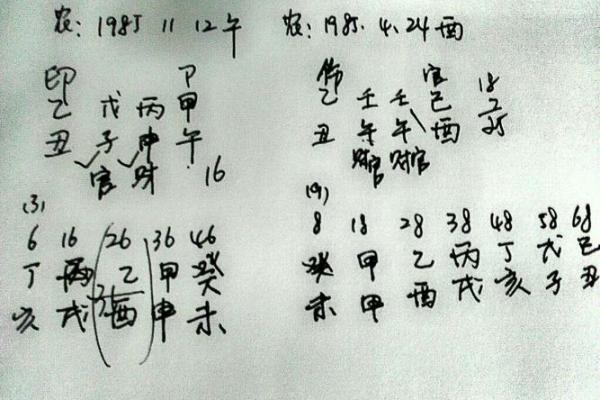 农: 1985 11 12午
农: 1985. 4. 24酉
印 卩
乙 戊 丙 甲
丑 子 申 午
官 财 16
伤 官
乙 壬 壬 己
丑 午 午 酉
财官 财官
18
25
(3)
6 16 26 36 46
丁 丙 乙 甲 癸
亥 戌 酉 申 未
(9)
8 18 28 38 48 58 68
癸 甲 乙 丙 丁 戊 己
未 甲 酉 戌 亥 子 丑